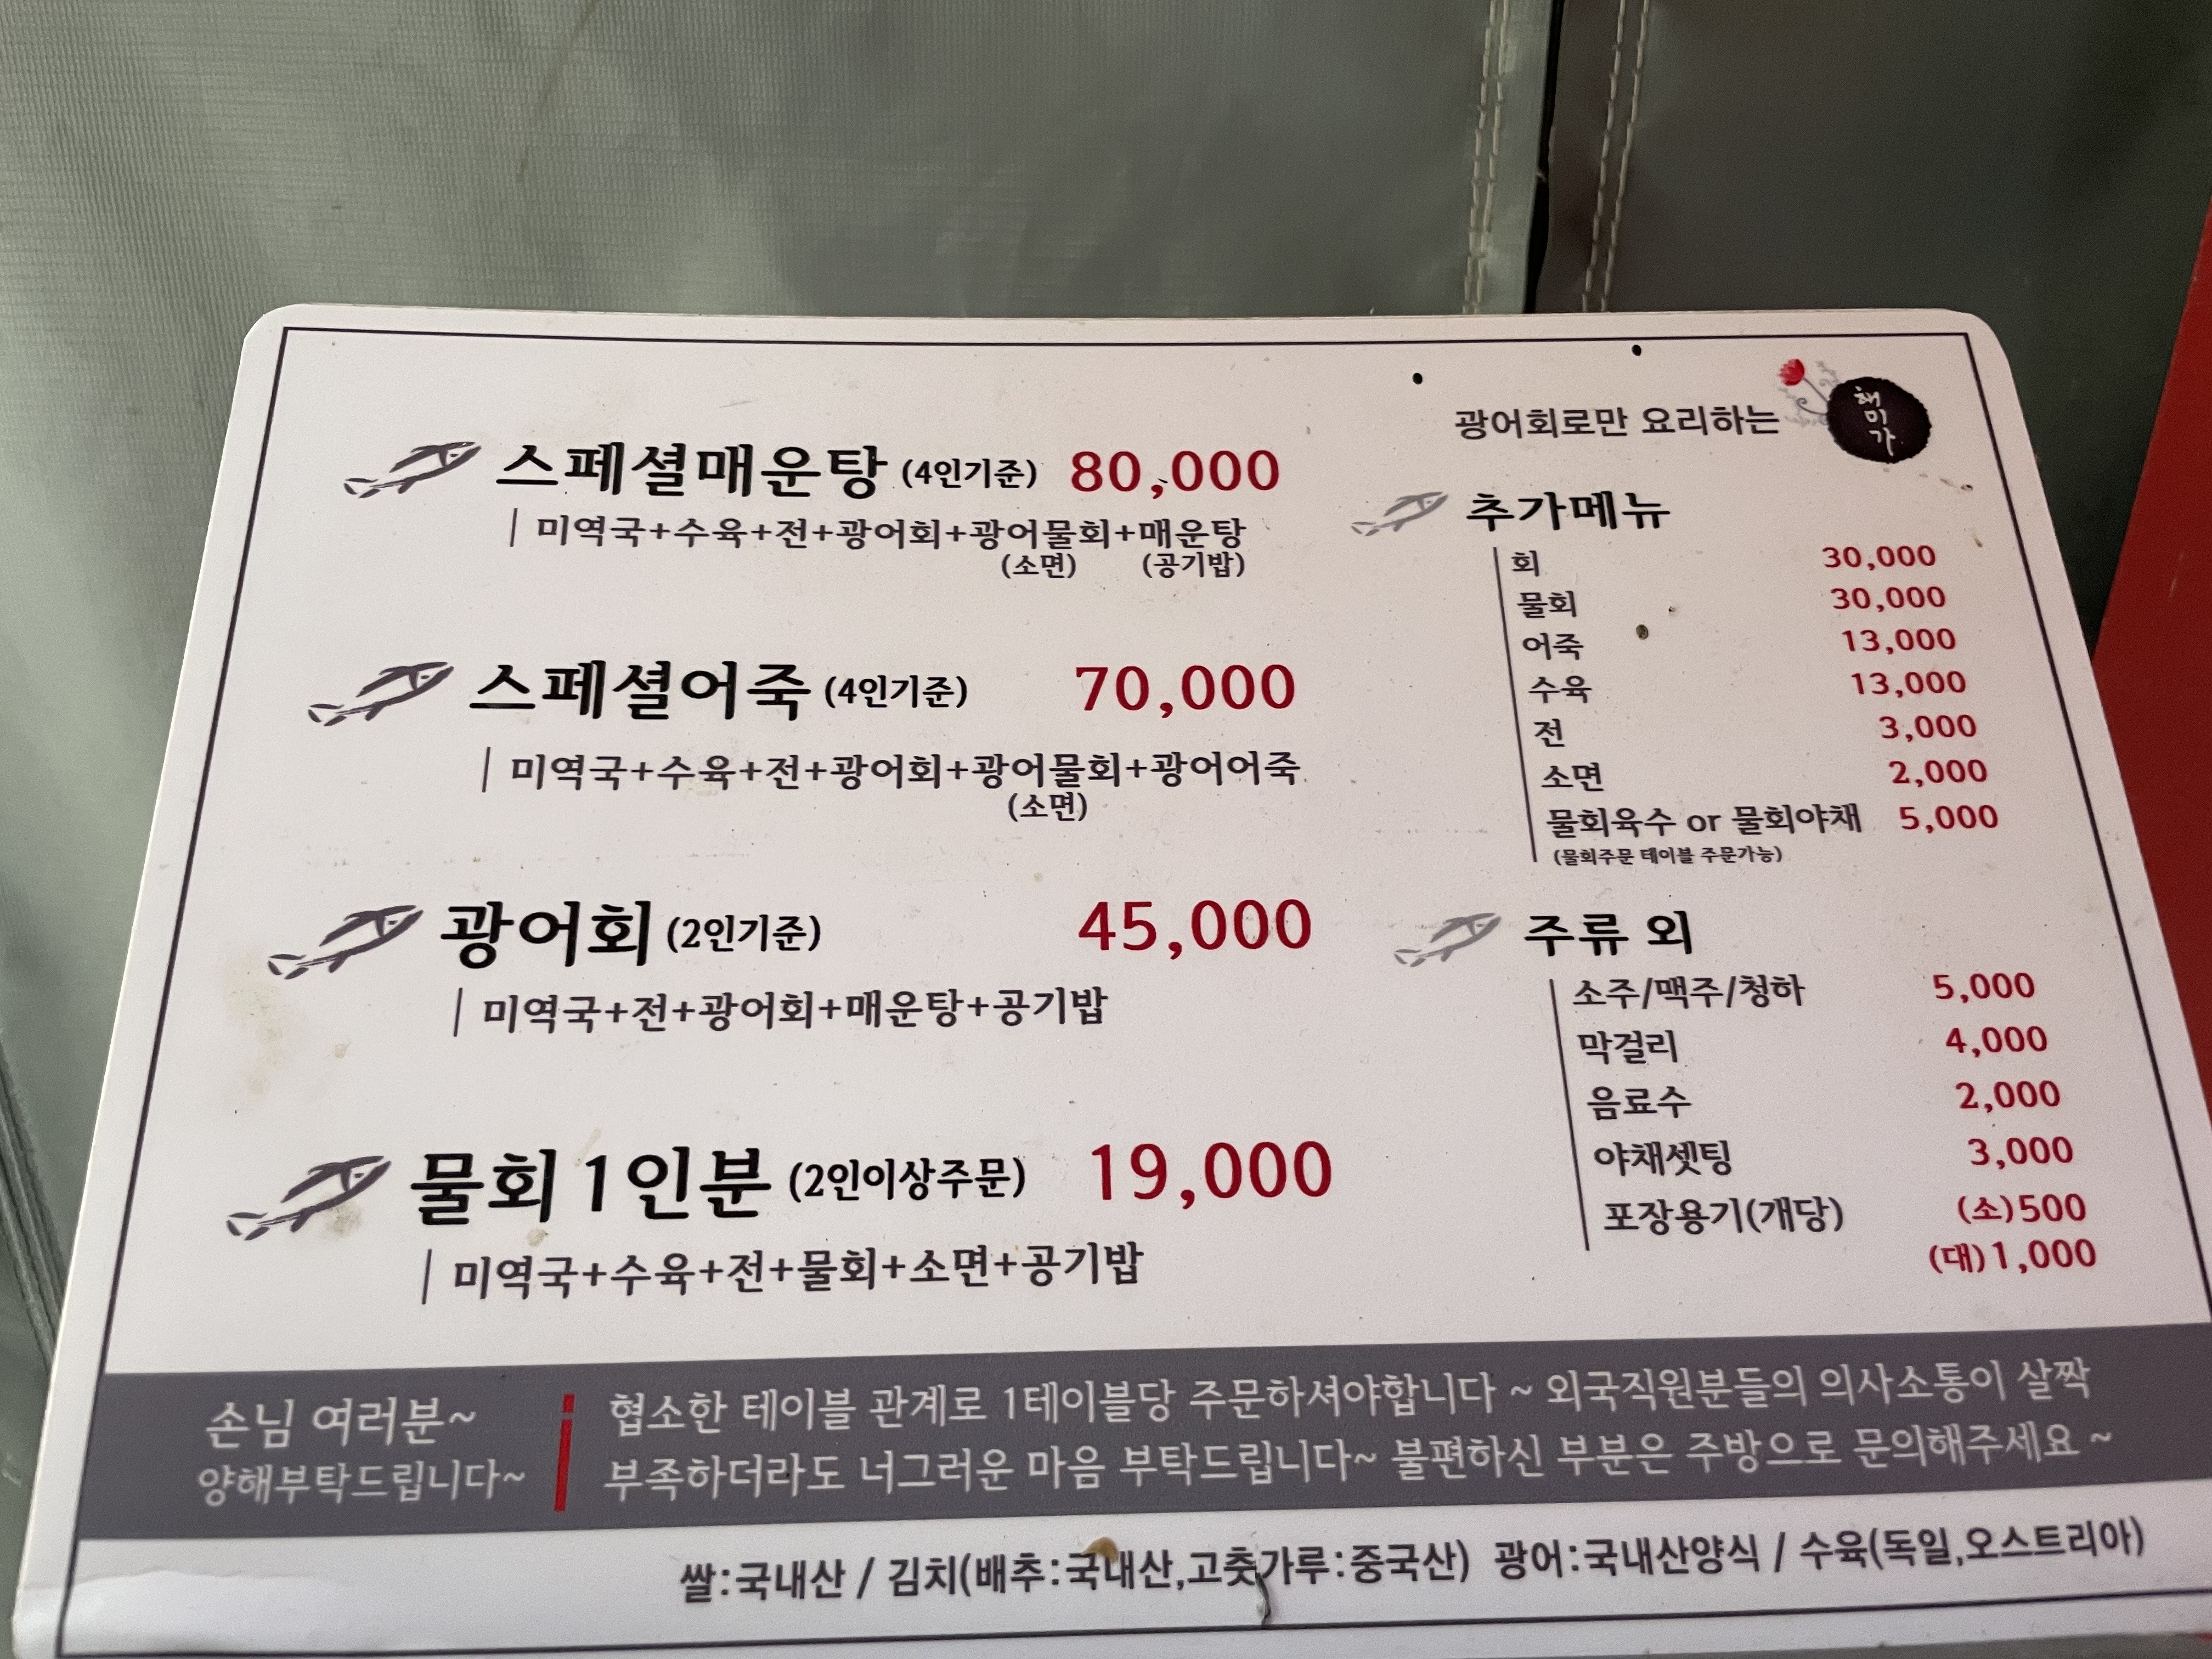 광어회로만 요리하는
해미가
스페셜매운탕 (4인기준) 80,000
미역국+수육+전+광어회+광어물회+매운탕
(소면) (공기밥)
스페셜어죽 (4인기준) 70,000
미역국+수육+전+광어회+광어물회+광어어죽
(소면)
광어회 (2인기준) 45,000
미역국+전+광어회+매운탕+공기밥
물회 1인분 (2인이상주문) 19,000
미역국+수육+전+물회+소면+공기밥
추가메뉴
회 30,000
물회 30,000
어죽 13,000
수육 13,000
전 3,000
소면 2,000
물회육수 or 물회야채 5,000
(물회주문 테이블 주문가능)
주류 외
소주/맥주/청하 5,000
막걸리 4,000
음료수 2,000
야채셋팅 3,000
포장용기(개당) (소)500
(대)1,000
손님 여러분~
양해부탁드립니다~
협소한 테이블 관계로 1테이블당 주문하셔야합니다 ~ 외국직원분들의 의사소통이 살짝
부족하더라도 너그러운 마음 부탁드립니다~ 불편하신 부분은 주방으로 문의해주세요 ~
쌀:국내산 / 김치(배추:국내산,고춧가루:중국산) 광어:국내산양식 / 수육(독일,오스트리아)